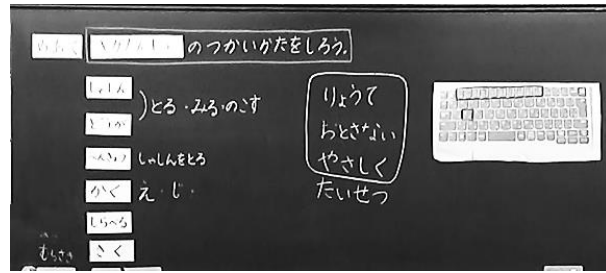 めあて のつかいかたをしろう。
しゃしん
どうが
とる・みる・のこす
しゃしんをとる
かく え・じ・
しらべる
むらさき きく
りょうて
おとさない
やさしく
たいせつ